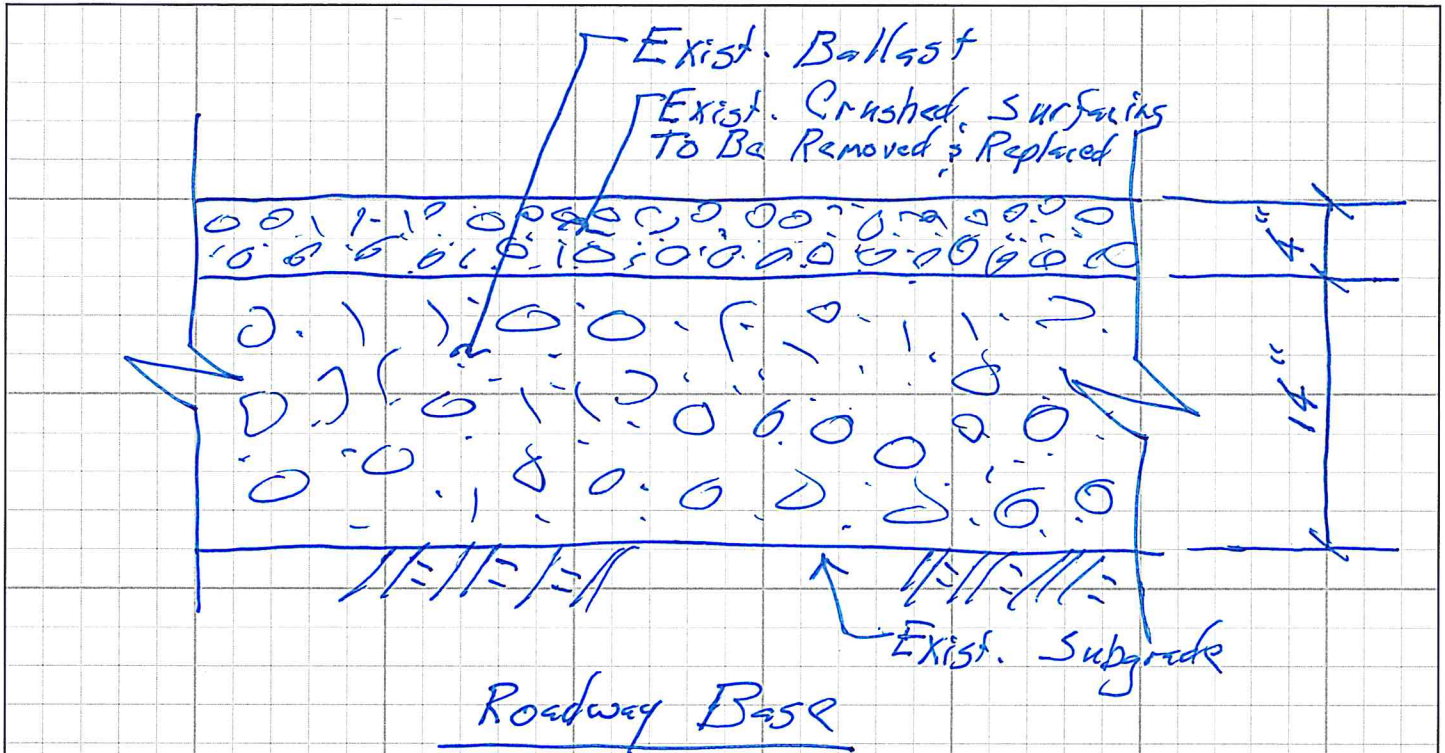 Exist. Ballast
Exist. Crushed Surfacing
To Be Removed & Replaced
4"
14"
Exist. Subgrade
Roadway Base